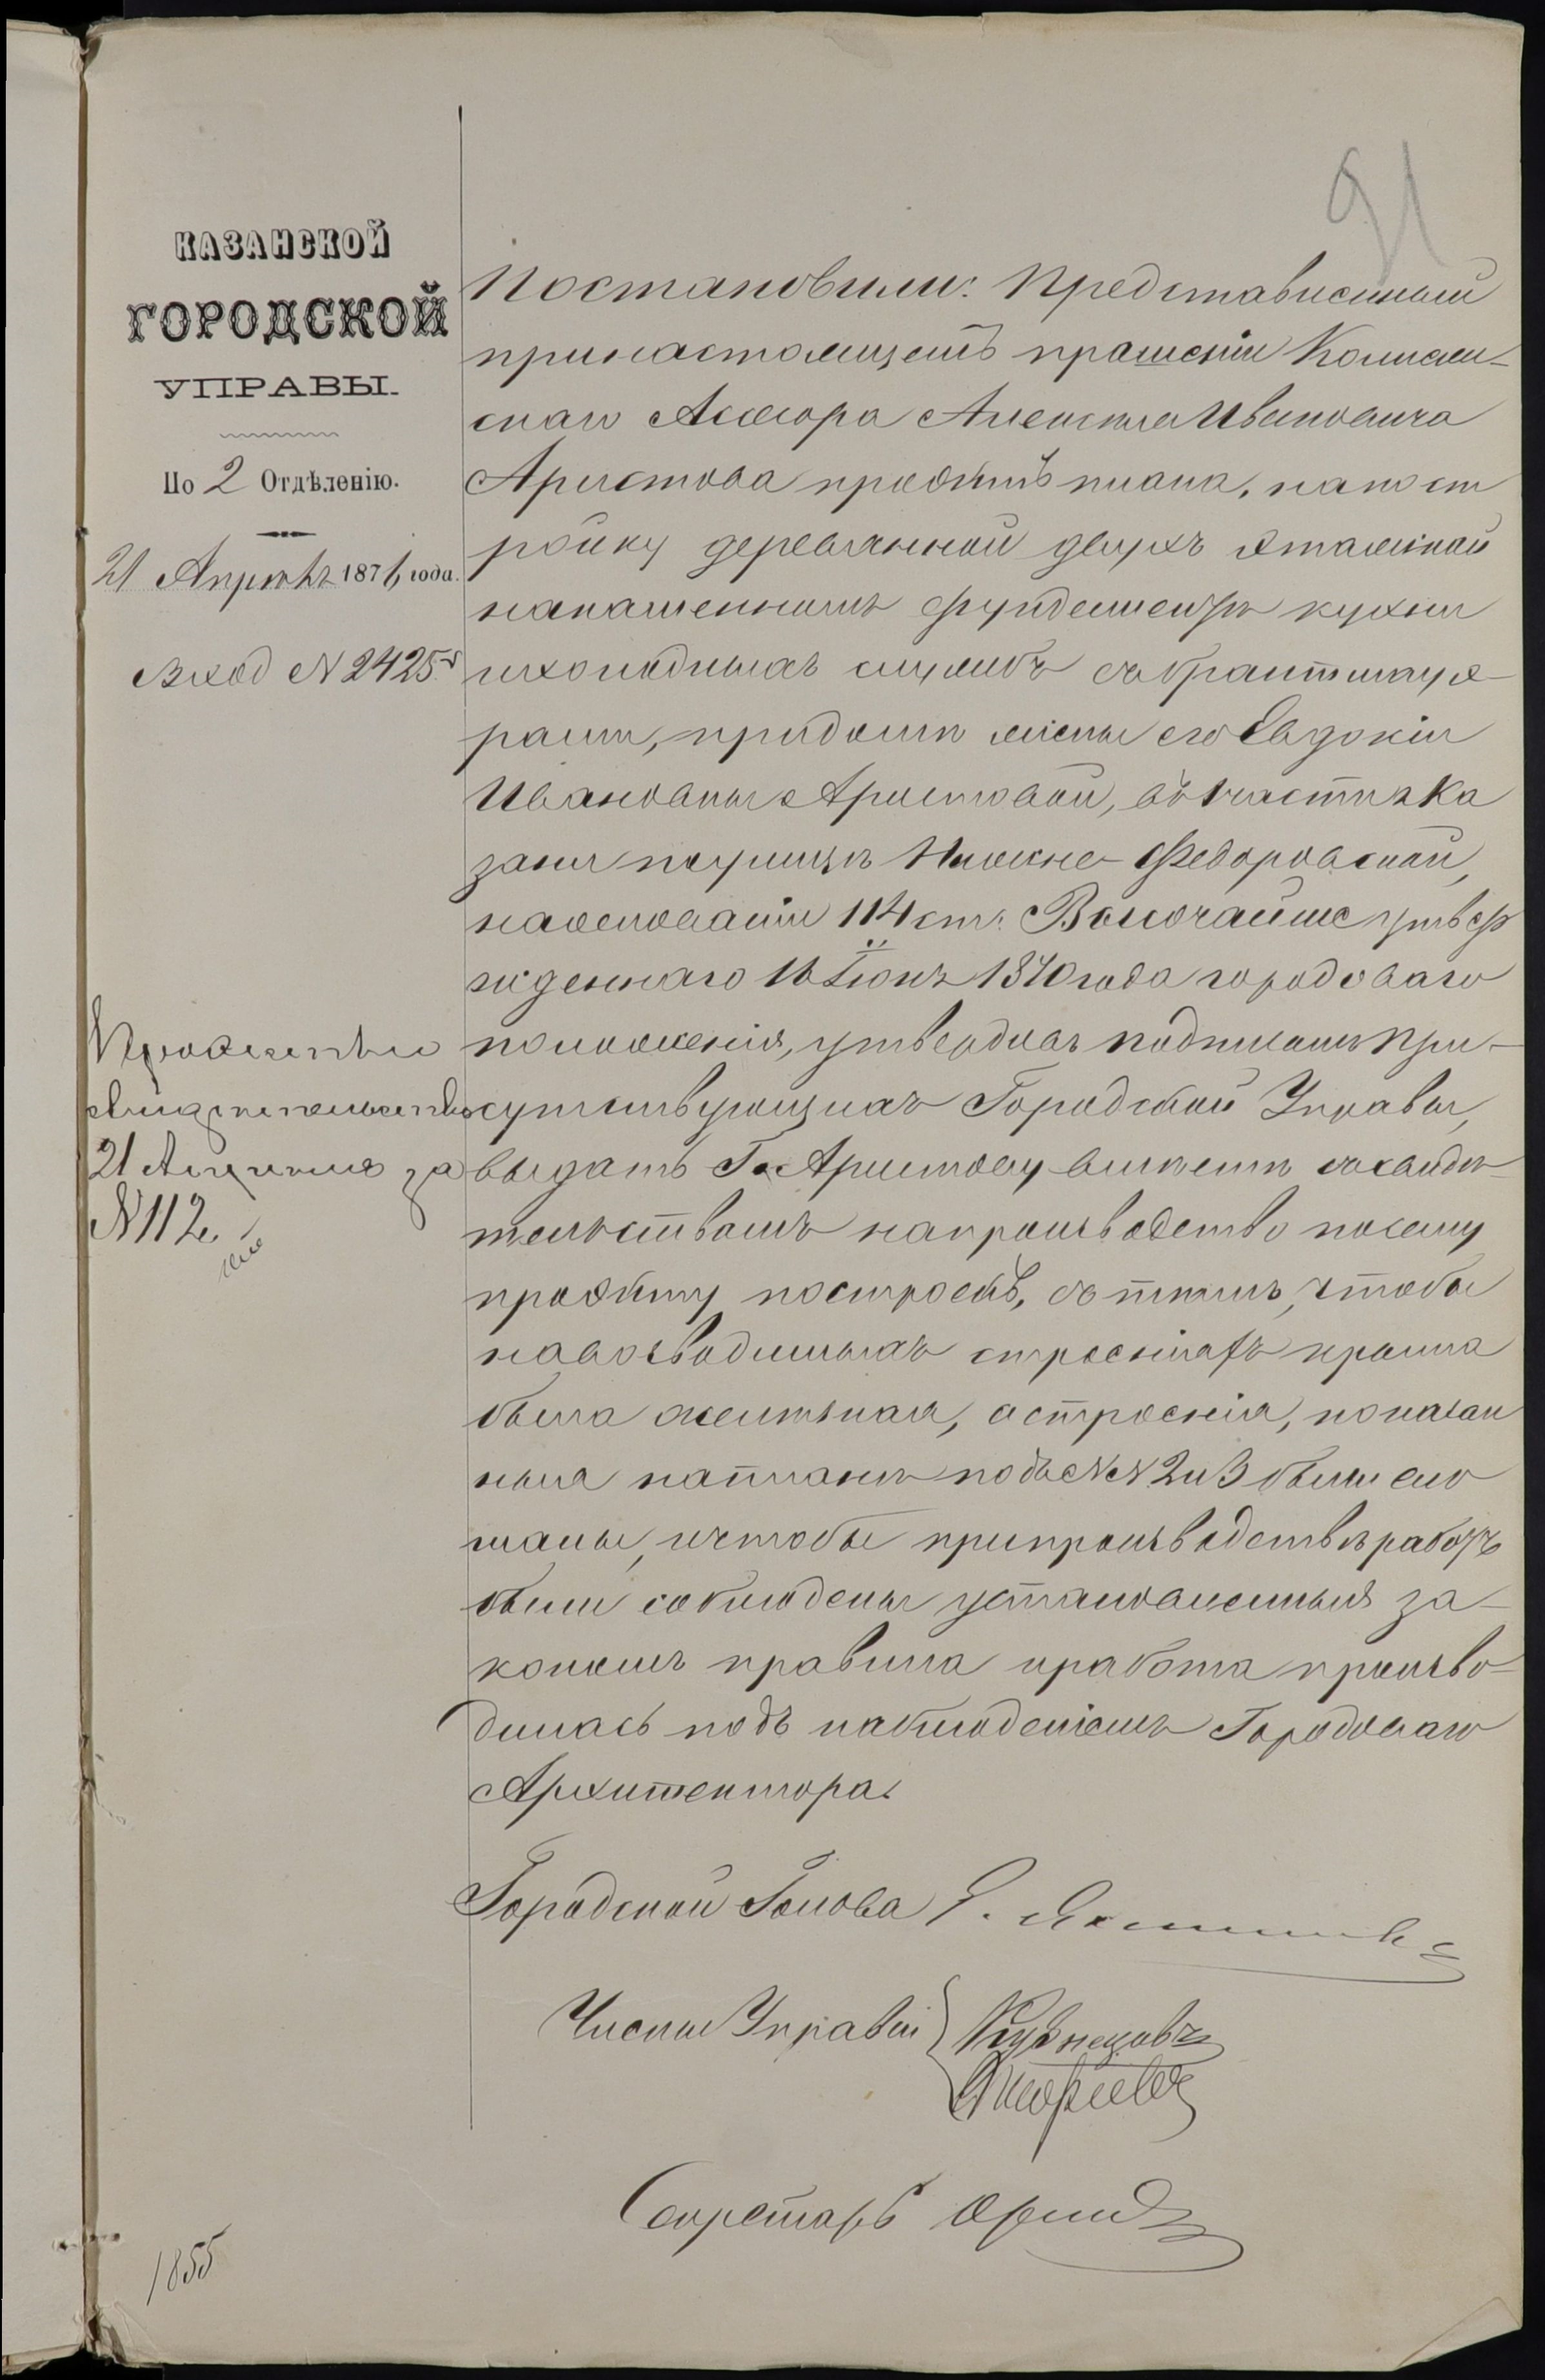 91
КАЗАНСКОЙ
ГОРОДСКОЙ
УПРАВЫ.
По 2 Отдѣленію.
21 Апрѣля 1871 года.
Вход № 2425
Постановили: Представленный
принастоящемъ прошеніи Коллеж-
скаго Ассесора Алексѣя Ивановича
Аристова проэктъ плана, напост
ройку деревянной двухъ этажной
накаменномъ фундаментѣ кухни
ихолодныхъ службъ сбрантмауэ-
рами, придомѣ жены его Евдокіи
Ивановны Аристовой, въ 1 части г. Ка
зани поулицѣ Нижне-Федоровской,
наоснованіи 114 ст. Высочайше утвер
жденнаго 16 Іюня 1870 года городоваго
положенія, утвердивъ подписомъ При-
сутствующихъ Городской Управы,
выдать Г. Аристову вмѣстѣ сосвидѣ-
тельствомъ напроизводство посему
проэкту построекъ, съ тѣмъ, чтобы
навозводимыхъ строеніяхъ крыша
была желѣзная, а строенія, показан
ныя напланѣ подъ №№ 2 и 3 были сло
маны, ичтобы припроизводствѣ работъ
были соблюдены установленныя за-
кономъ правила иработа произво-
дилась подъ наблюденіемъ Городоваго
Архитектора.
свидѣтельство
21 за
№ 112.
Городской Голова
Члены Управы Кузнецовъ
Секретарь
1855